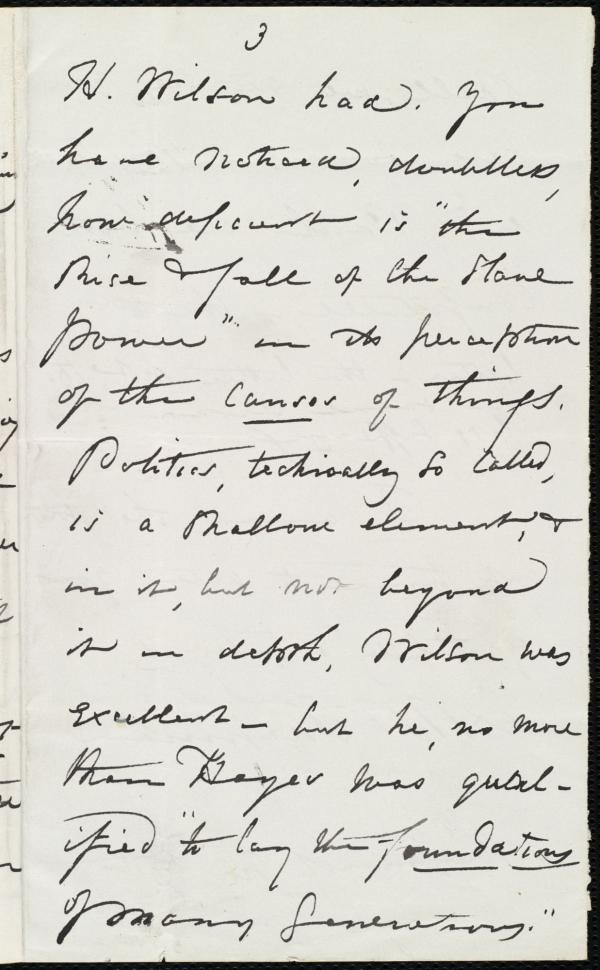 3
H. Wilson had. You
have noticed, doubtless,
how deficient is "the
Rise & fall of the Slave
power" in its perception
of the causes of things.
Politics, technically so called,
is a shallow element, &
in it, but not beyond
it in depth, Wilson was
excellent - but he, no more
than Hayes was qual-
ified "to lay the foundations
of many generations."